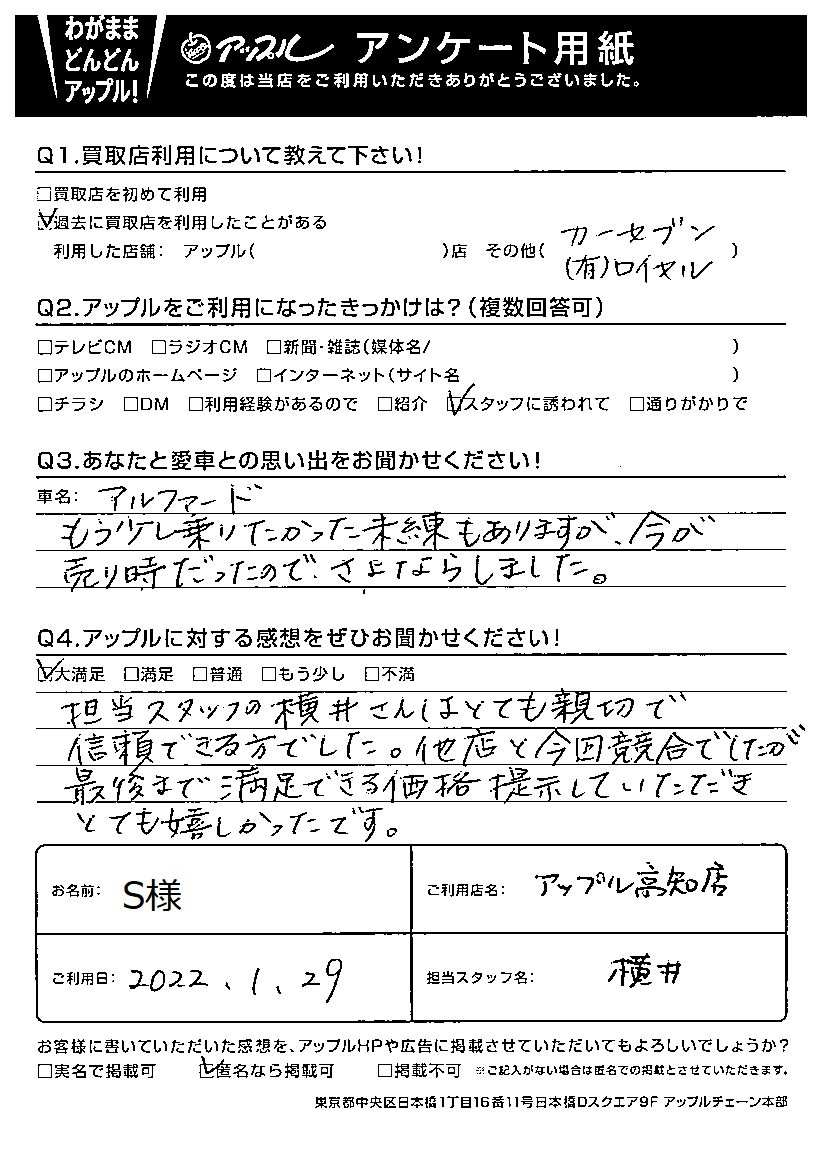 わがまま
どんどん
アップル!
アップル アンケート用紙
この度は当店をご利用いただきありがとうございました。
Q1.買取店利用について教えて下さい!
□買取店を初めて利用
☑過去に買取店を利用したことがある
利用した店舗: アップル( )店 その他( カーセブン
(有)ロイヤル )
Q2.アップルをご利用になったきっかけは?(複数回答可)
□テレビCM □ラジオCM □新聞・雑誌(媒体名/ )
□アップルのホームページ □インターネット(サイト名 )
□チラシ □DM □利用経験があるので □紹介 ☑スタッフに誘われて □通りがかりで
Q3.あなたと愛車との思い出をお聞かせください!
車名: アルファード
もう少し乗りたかった未練もありますが、今が
売り時だったので、さよならしました。
Q4.アップルに対する感想をぜひお聞かせください!
☑大満足 □満足 □普通 □もう少し □不満
担当スタッフの横井さんはとても親切で
信頼できる方でした。他店と今回競合でしたが
最後まで満足できる価格提示していただき
とても嬉しかったです。
お名前: S様
ご利用店名: アップル高知店
ご利用日: 2022、1、29
担当スタッフ名: 横井
お客様に書いていただいた感想を、アップルHPや広告に掲載させていただいてもよろしいでしょうか?
□実名で掲載可 ☑匿名なら掲載可 □掲載不可 ※ご記入がない場合は匿名での掲載とさせていただきます。
東京都中央区日本橋1丁目16番11号日本橋Dスクエア9F アップルチェーン本部